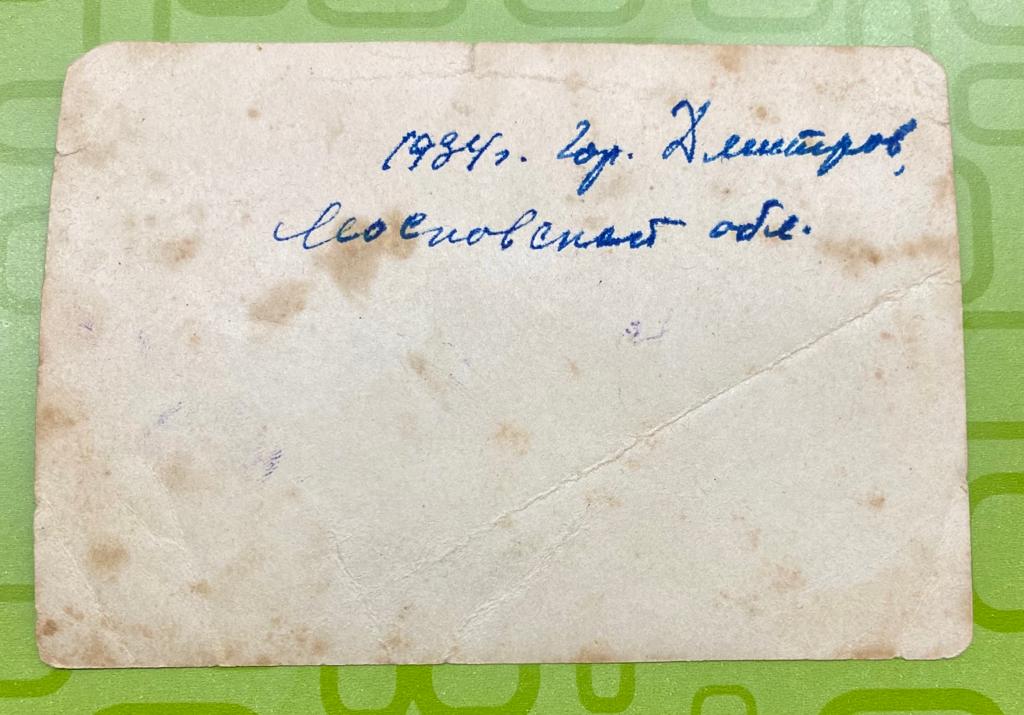 1934г. Гор. Дмитров,
Московской обл.